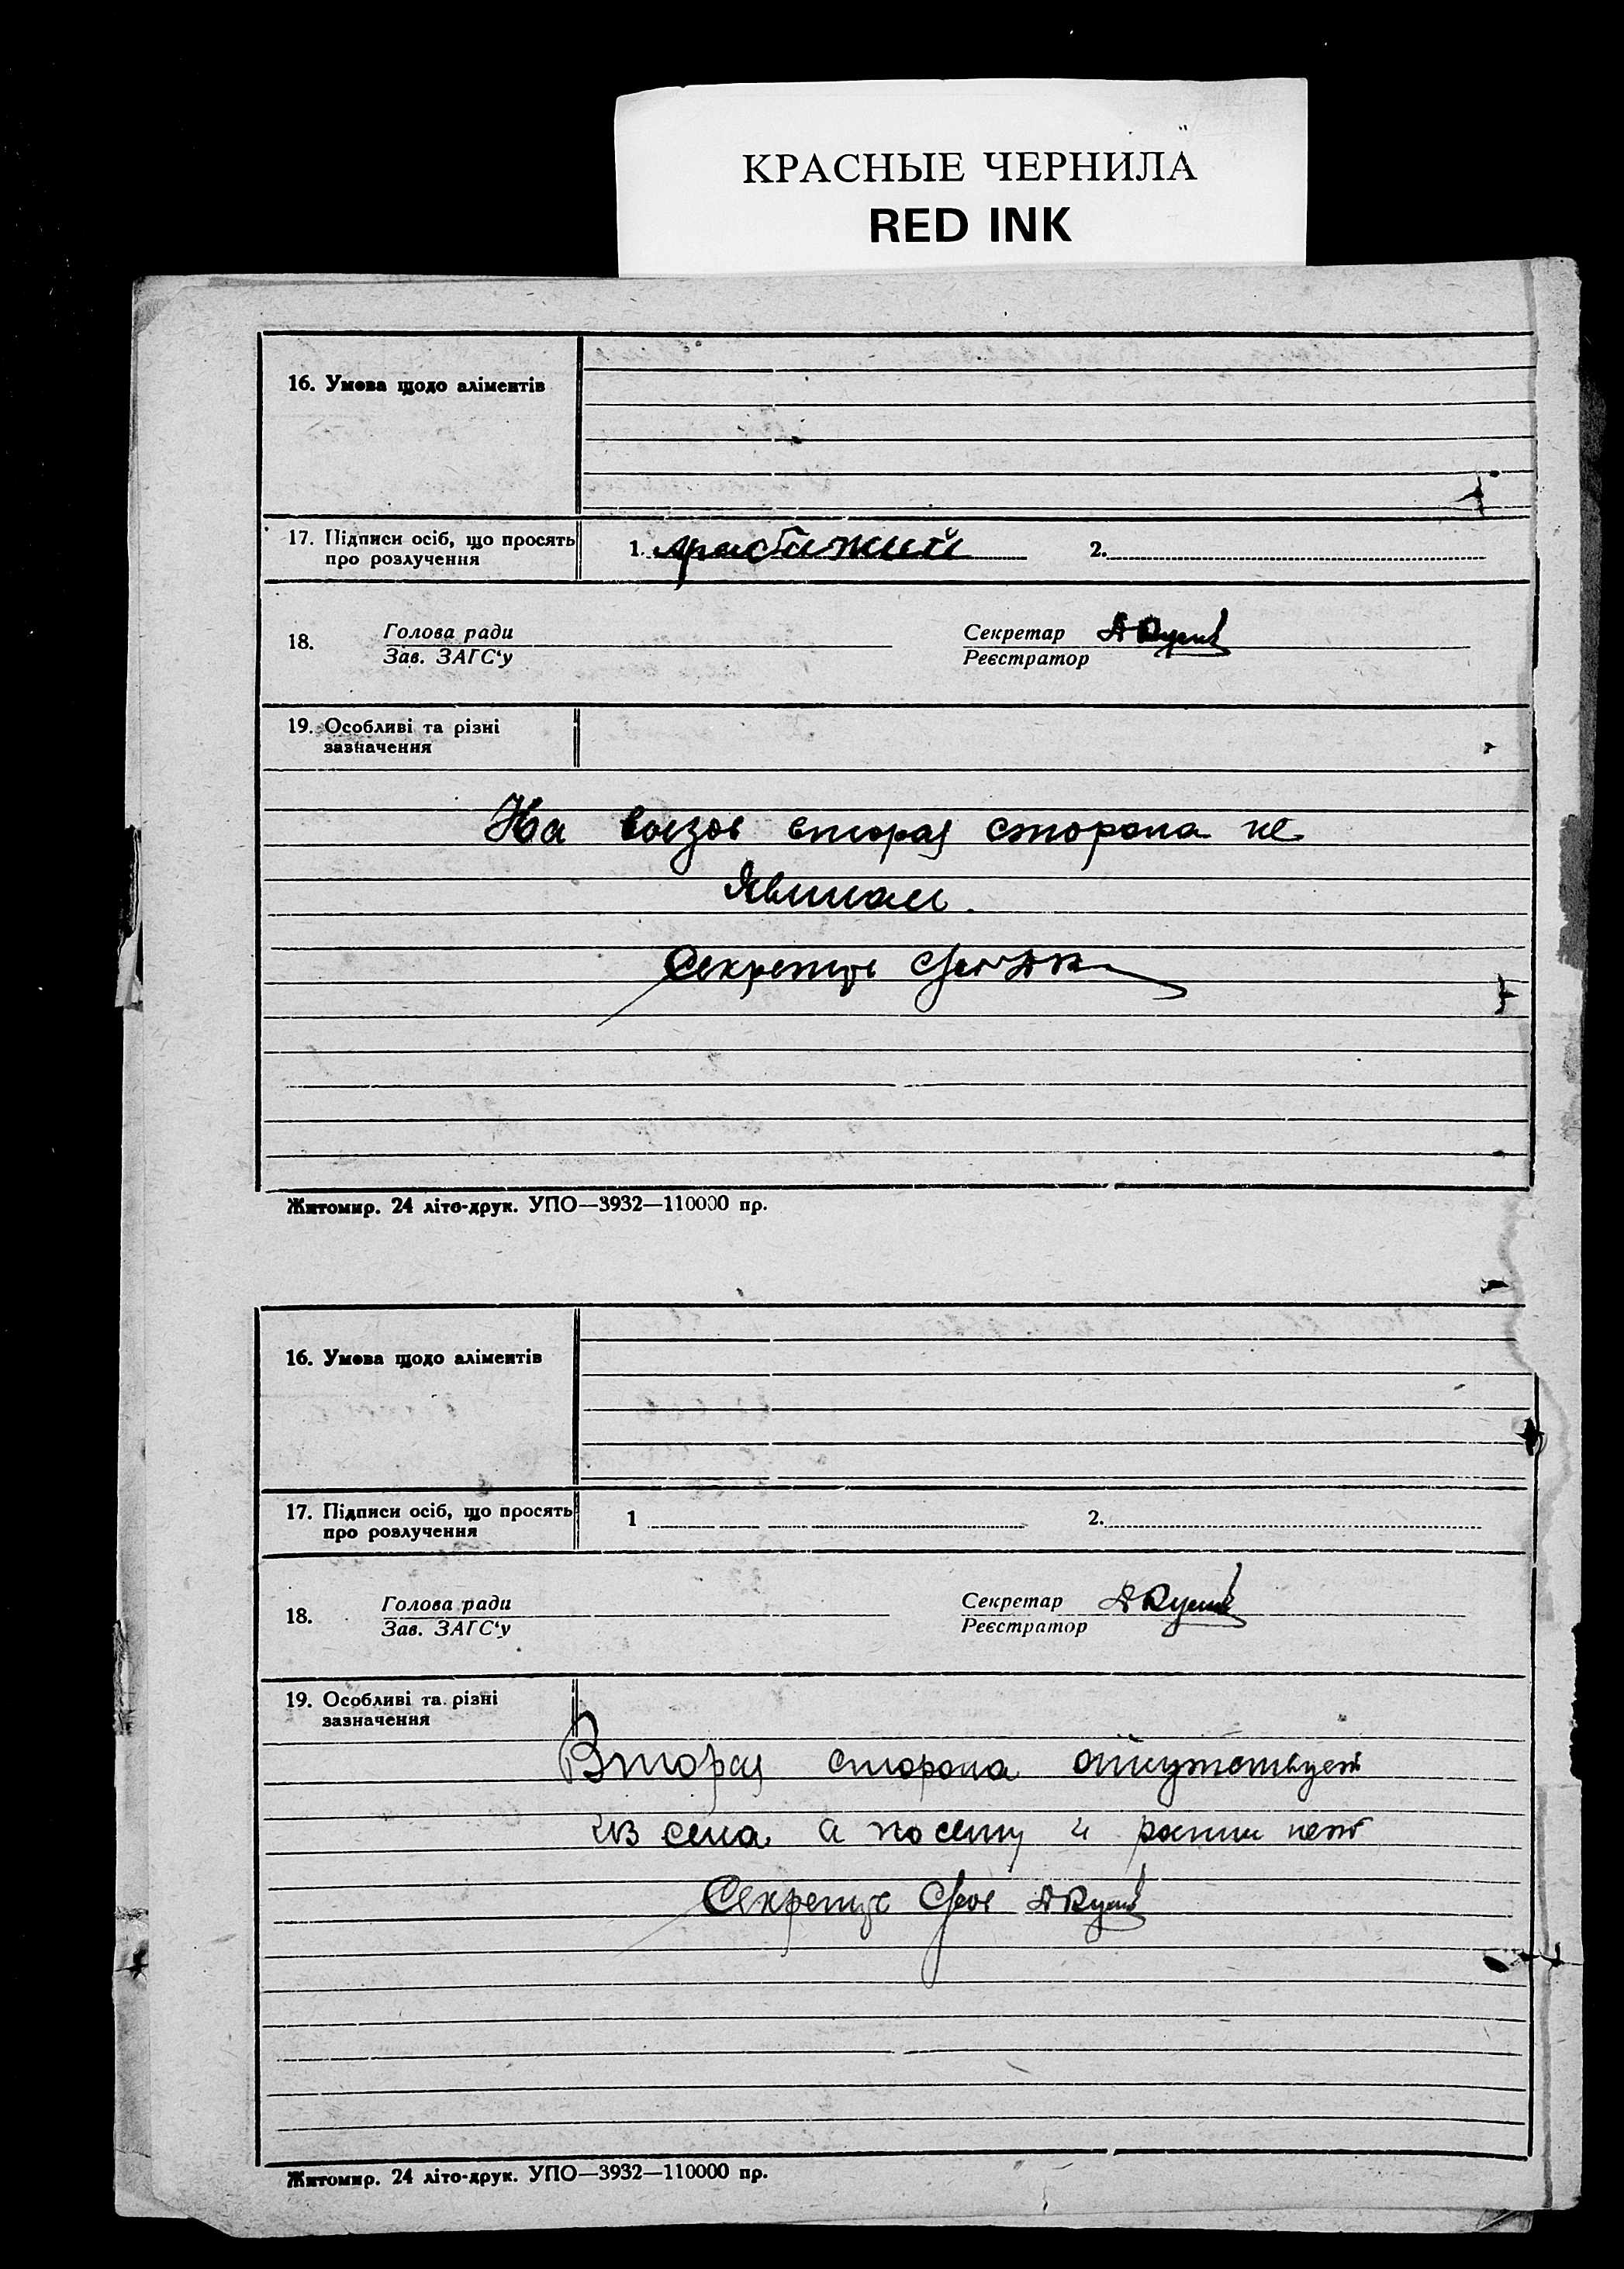 КРАСНЫЕ ЧЕРНИЛА
RED INK
16. Умова щодо аліментів
17. Підписи осіб, що просять
про розлучення
1.
2.
18. Голова ради
Зав. ЗАГС‘у
Секретар
Реєстратор
19. Особливі та різні
зазначення
На вызов вторая сторона не
явилась.
Секретарь
Житомир. 24 літо-друк. УПО—3932—110000 пр.
16. Умова щодо аліментів
17. Підписи осіб, що просять
про розлучення
1
2.
18. Голова ради
Зав. ЗАГС‘у
Секретар
Реєстратор
19. Особливі та різні
зазначення
Вторая сторона отсутствует
из села а посему и нет
Секретарь
Житомир. 24 літо-друк. УПО—3932—110000 пр.